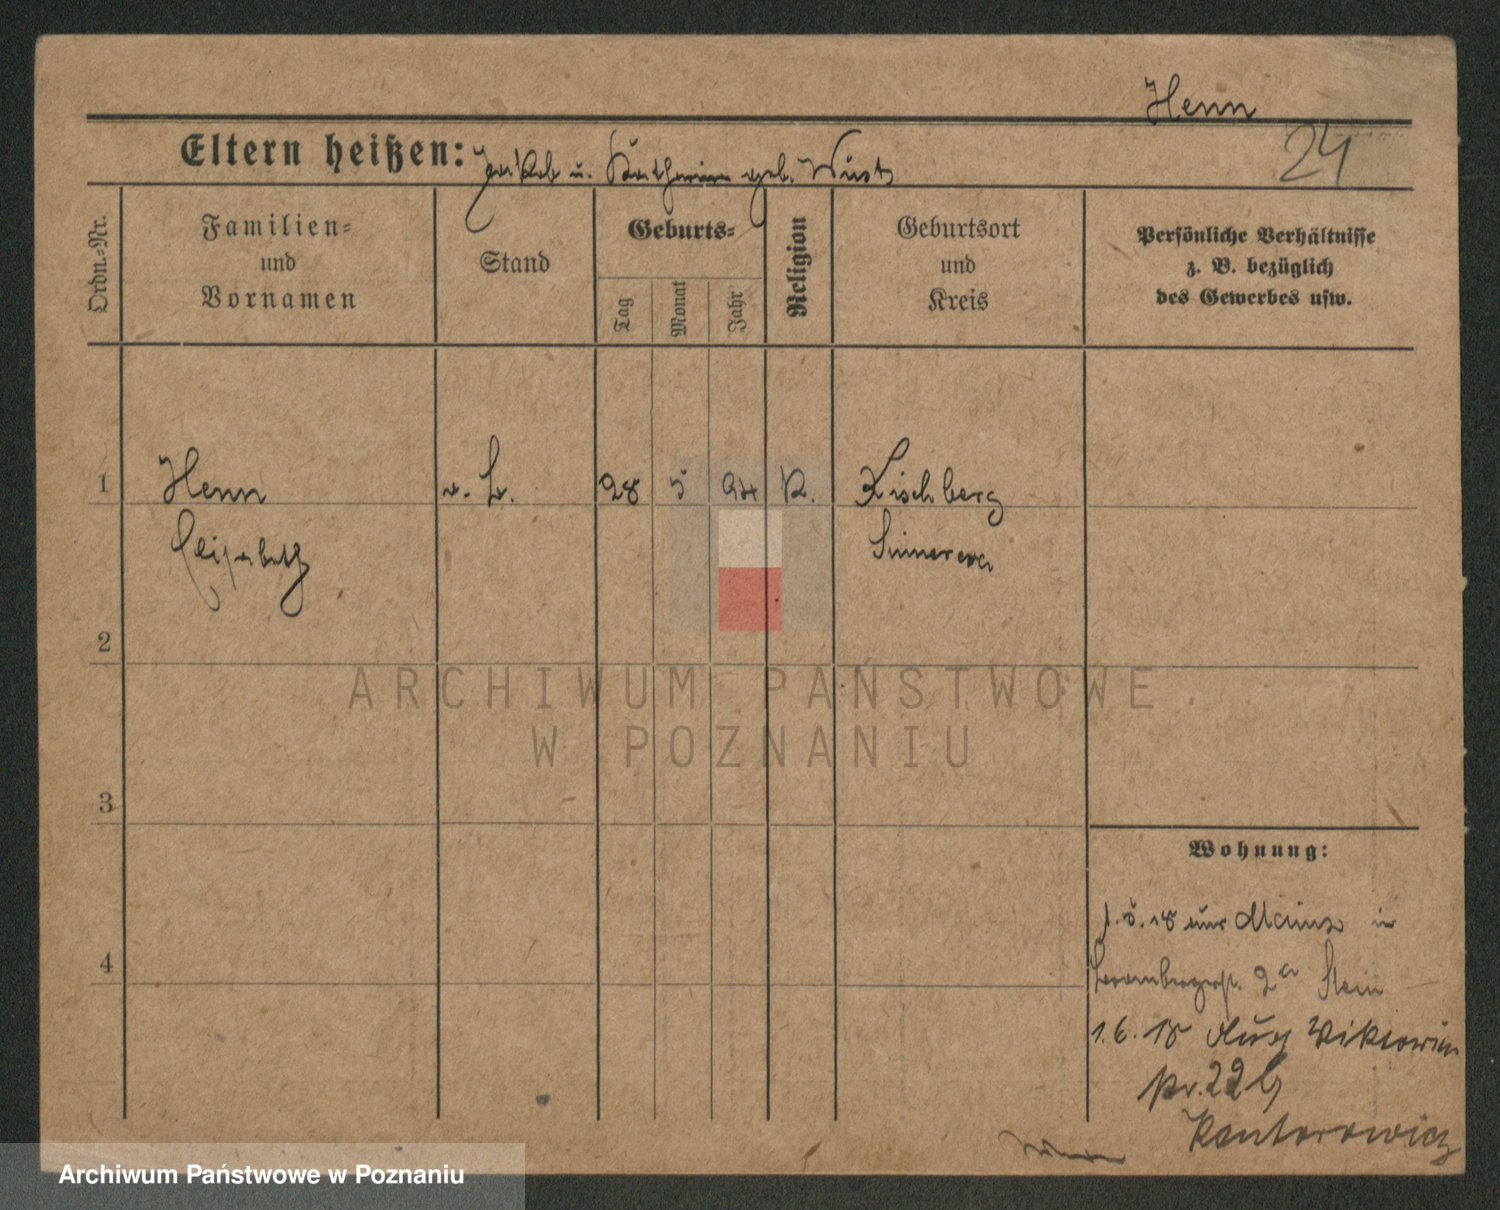 Henn
24
Eltern heißen: Jakob u. Katharina geb. Wust
Ordn.-Nr.
Familien-
und
Vornamen
Stand
Geburts-
Tag
Monat
Jahr
Religion
Geburtsort
und
Kreis
Persönliche Verhältnisse
z. B. bezüglich
des Gewerbes usw.
1 Henn 28 5 94 K. Kischberg
Elisabeth
2
3
4
Wohnung:
1.5.18 aus Mainz in
2a Stein
1.6.18 Aug Viktoria
22b
Kantorowicz
ARCHIWUM PAŃSTWOWE
W POZNANIU
Archiwum Państwowe w Poznaniu